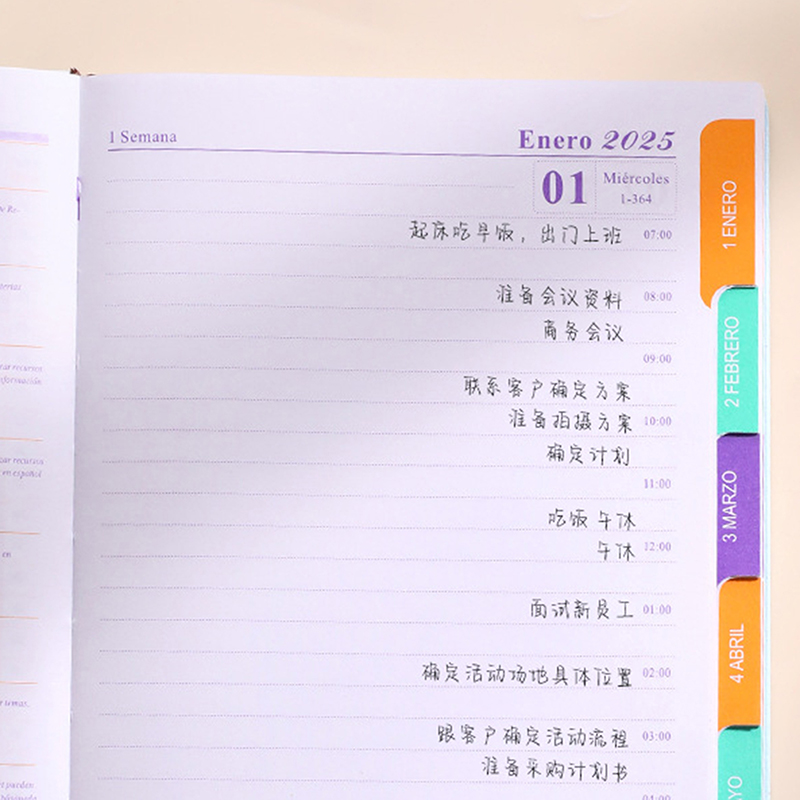 1 Semana
Enero 2025
01
Miércoles
1-364
起床吃早饭，出门上班 07:00
准备会议资料 08:00
商务会议
09:00
联系客户确定方案
准备拍摄方案 10:00
确定计划
11:00
吃饭 午休
午休 12:00
面试新员工 01:00
确定活动场地具体位置 02:00
跟客户确定活动流程 03:00
准备采购计划书
04:00
1 ENERO
2 FEBRERO
3 MARZO
4 ABRIL
YO
zar recursos
zar recursos
en español
en
r temas.